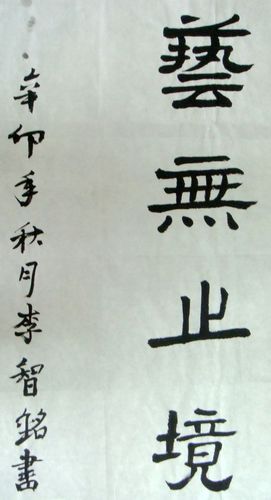 藝無止境
辛卯年秋月李智銘書